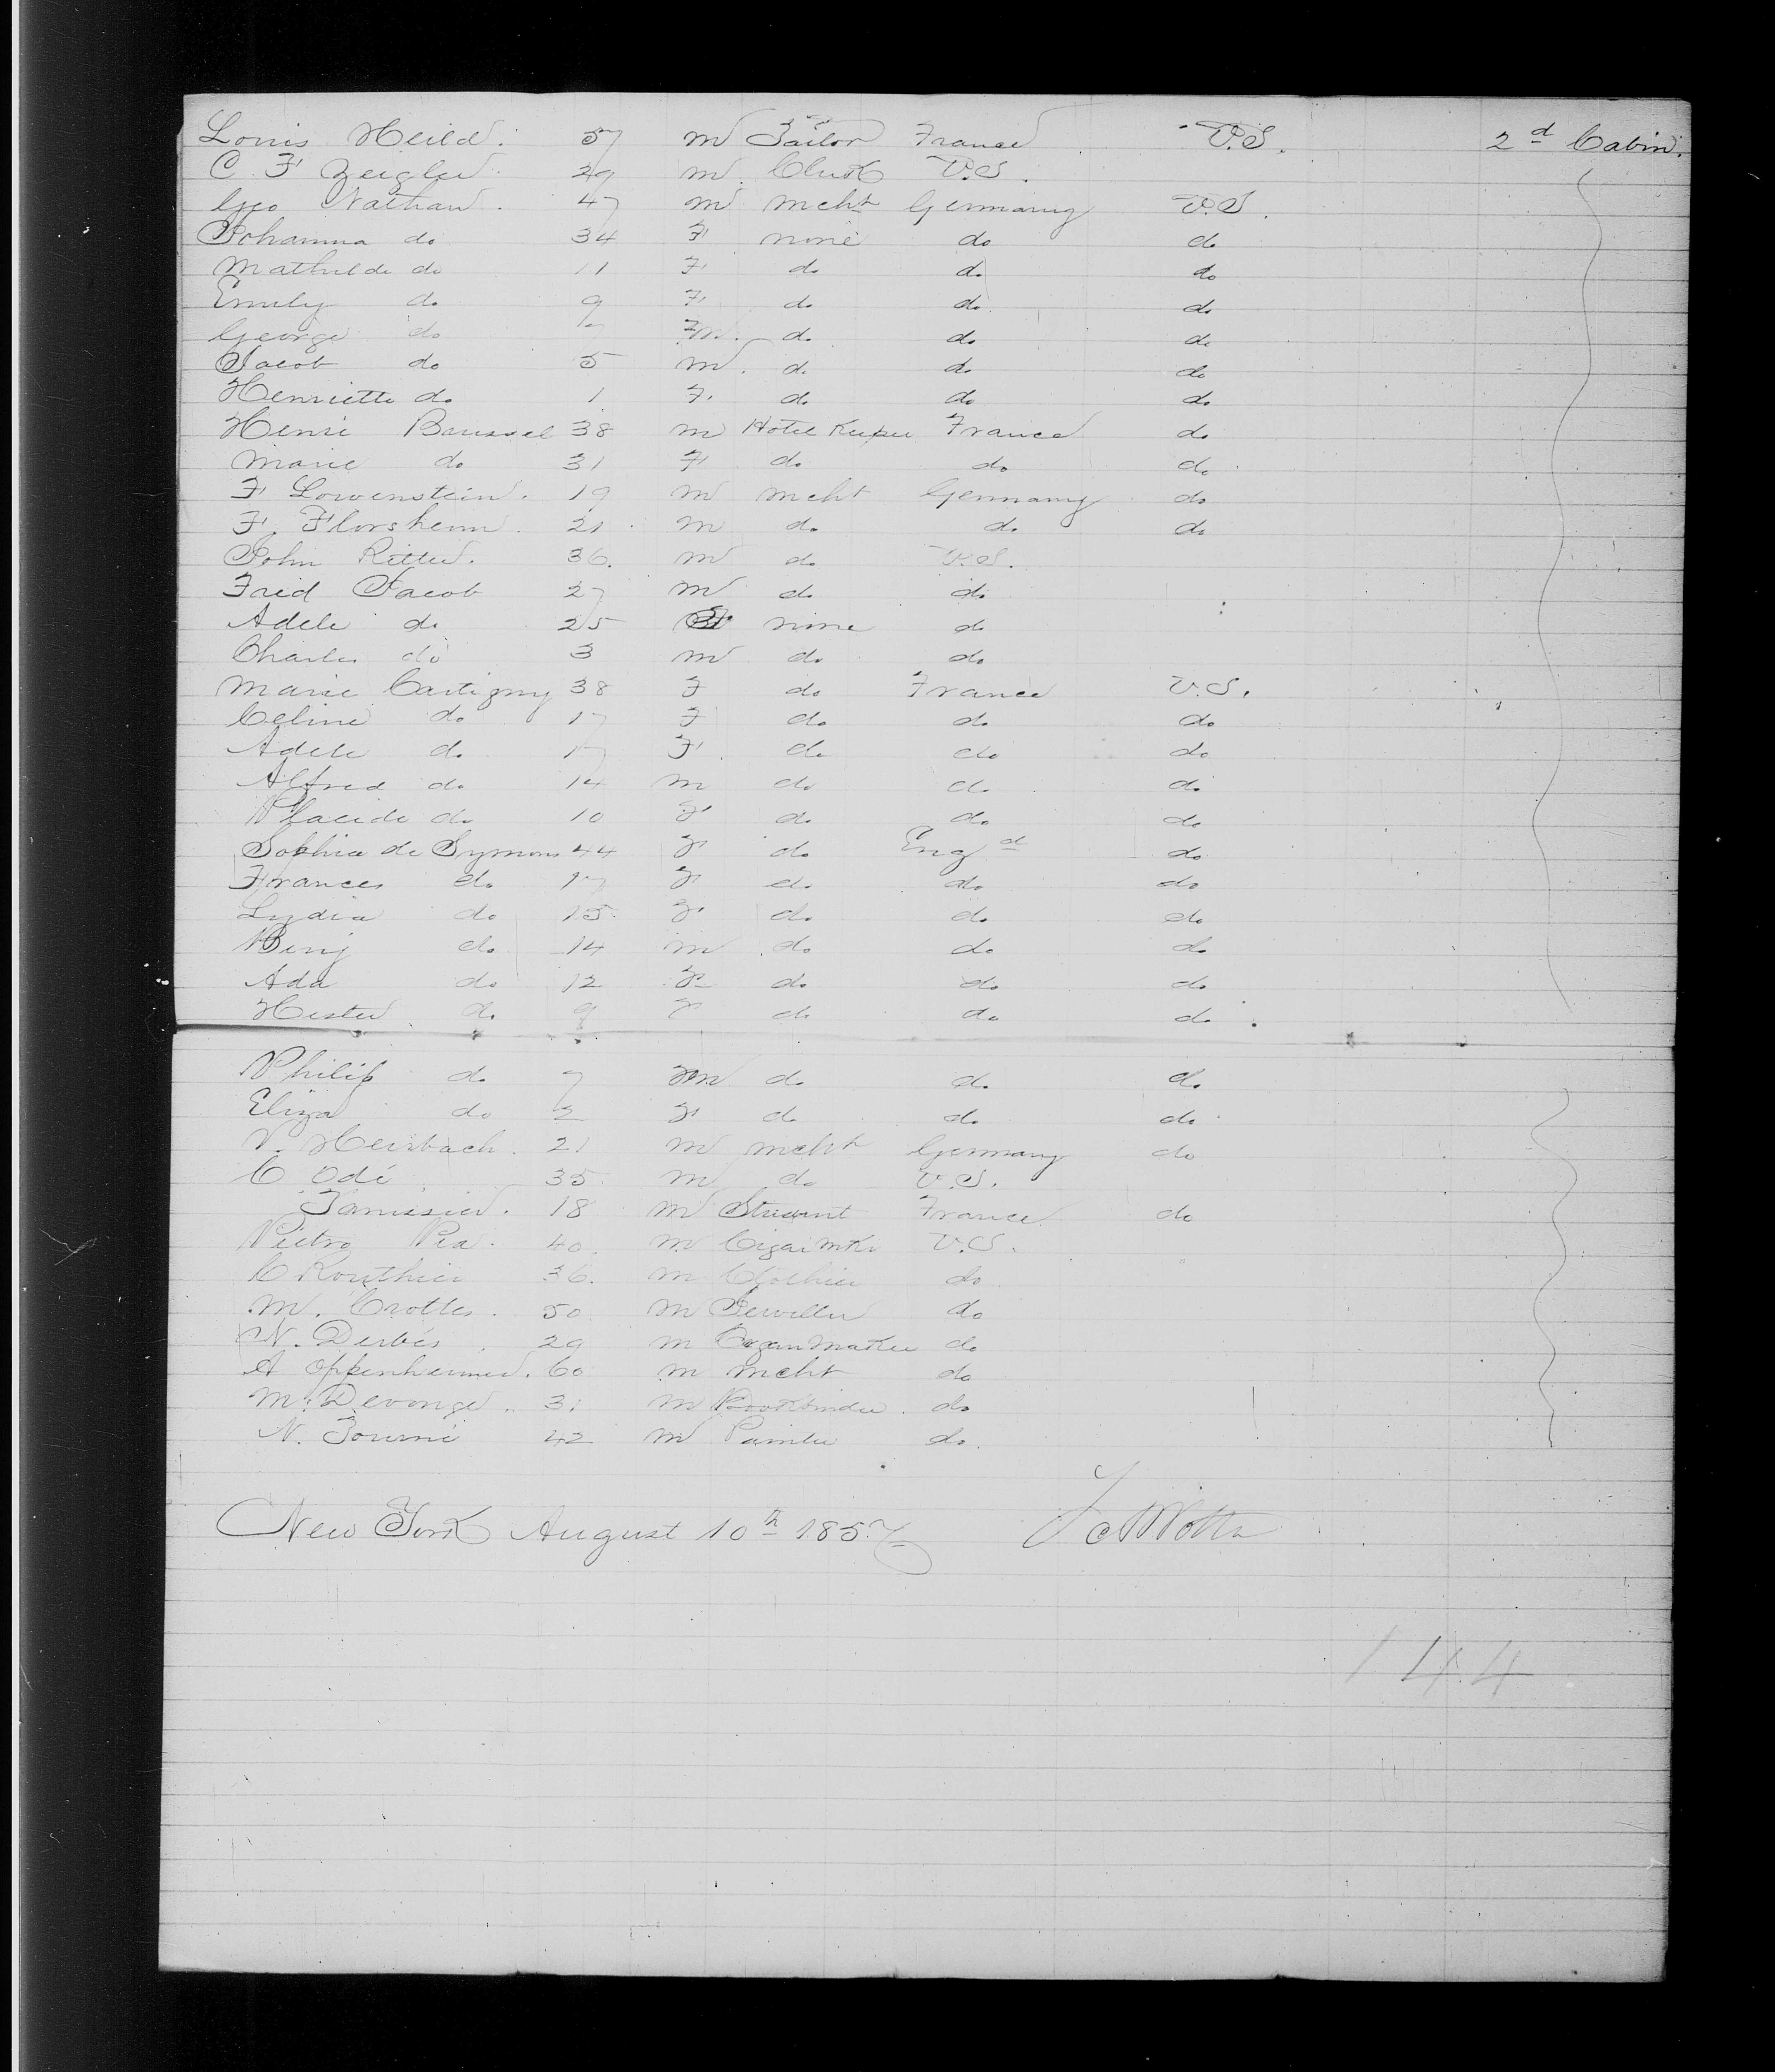 Louis Heild. 57 m Tailor France U.S. 2d Cabin.
C F Zeigler. 29 m. Clerk U.S.
Geo Nathan. 47 m mcht Germany U.S.
Johanna do 34 F none do do
Mathilde do 11 F do do do
Emily do 9 F do do do
George do 7 m. do do do
Jacob do 5 m. do do do
Henriette do 1 F. do do do
Henri Baussel 38 m Hotel Keeper France do
Marie do 31 F do do do
F Lowenstein. 19 m mcht Germany do
F. Florsheim. 21 m do do do
John Ritter. 36. m do U.S.
Fred Jacob 27 m do do
Adele do 25 F none do
Charles do 3 m do do
Marie Cartigny 38 F do France U.S.
Celine do 17 F do do do
Adele do 17 F do do do
Alfred do 14 m do do do
Placide do 10 F do do do
Sophia de Symons 44 F do Engd do
Frances do 17 F do do do
Lydia do 15 F do do do
Benj do 14 m do do do
Ada do 12 F do do do
Hester do 9 F do do do
Philip do 7 m do do do
Eliza do 2 F do do do
V. Heirbach. 21 m mcht Germany do
C Odé 35 m do U.S.
Tamisier. 18 m Student France do
Pietro Pia. 40. m. Cigar mKr U.S.
C Routhier 36. m Clothier do
M. Crottes. 50 m Jeweller do
N. Derbés 29 m Cigar Maker do
A Oppenheimer. 60 m mcht do
M. Devonge. 31 m Bookbinder do
N. Tourné 42 m Painter do.
New York August 10th 1857
144